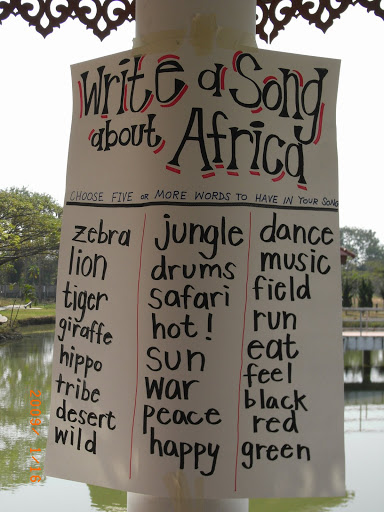 Write a Song
about Africa
CHOOSE FIVE OR MORE WORDS TO HAVE IN YOUR SONG
zebra
lion
tiger
giraffe
hippo
tribe
desert
wild
jungle
drums
safari
hot!
sun
war
peace
happy
dance
music
field
run
eat
feel
black
red
green
2009/1/16